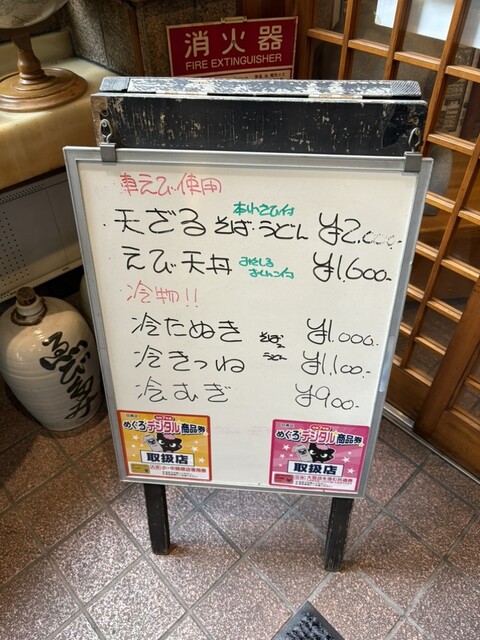 消火器
FIRE EXTINGUISHER
車えび使用
本わさび付
天ざるそば・うどん ¥2,000-
えび天丼 みそしる おしんこ付 ¥1,600-
冷物!!
冷たぬき そば うどん ¥1,000-
冷きつね ¥1,100-
冷むぎ ¥900-
めぐろデジタル商品券
取扱店
めぐろデジタル商品券
取扱店